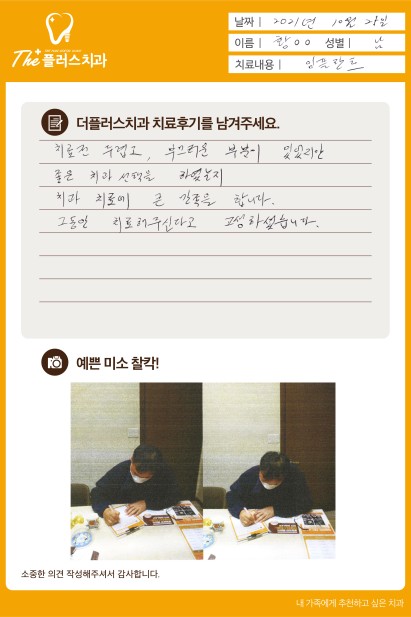 The+ 플러스치과
날짜 | 2021년 10월 29일
이름 | 황OO 성별 | 남
치료내용 | 임플란트
더플러스치과 치료후기를 남겨주세요.
치료전 두렵고, 부끄러운 부분이 있었지만
좋은 치과 선택을 하였는지
치과 치료에 큰 만족을 합니다.
그동안 치료해주신다고 고생하셨습니다.
예쁜 미소 찰칵!
소중한 의견 작성해주셔서 감사합니다.
내 가족에게 추천하고 싶은 치과